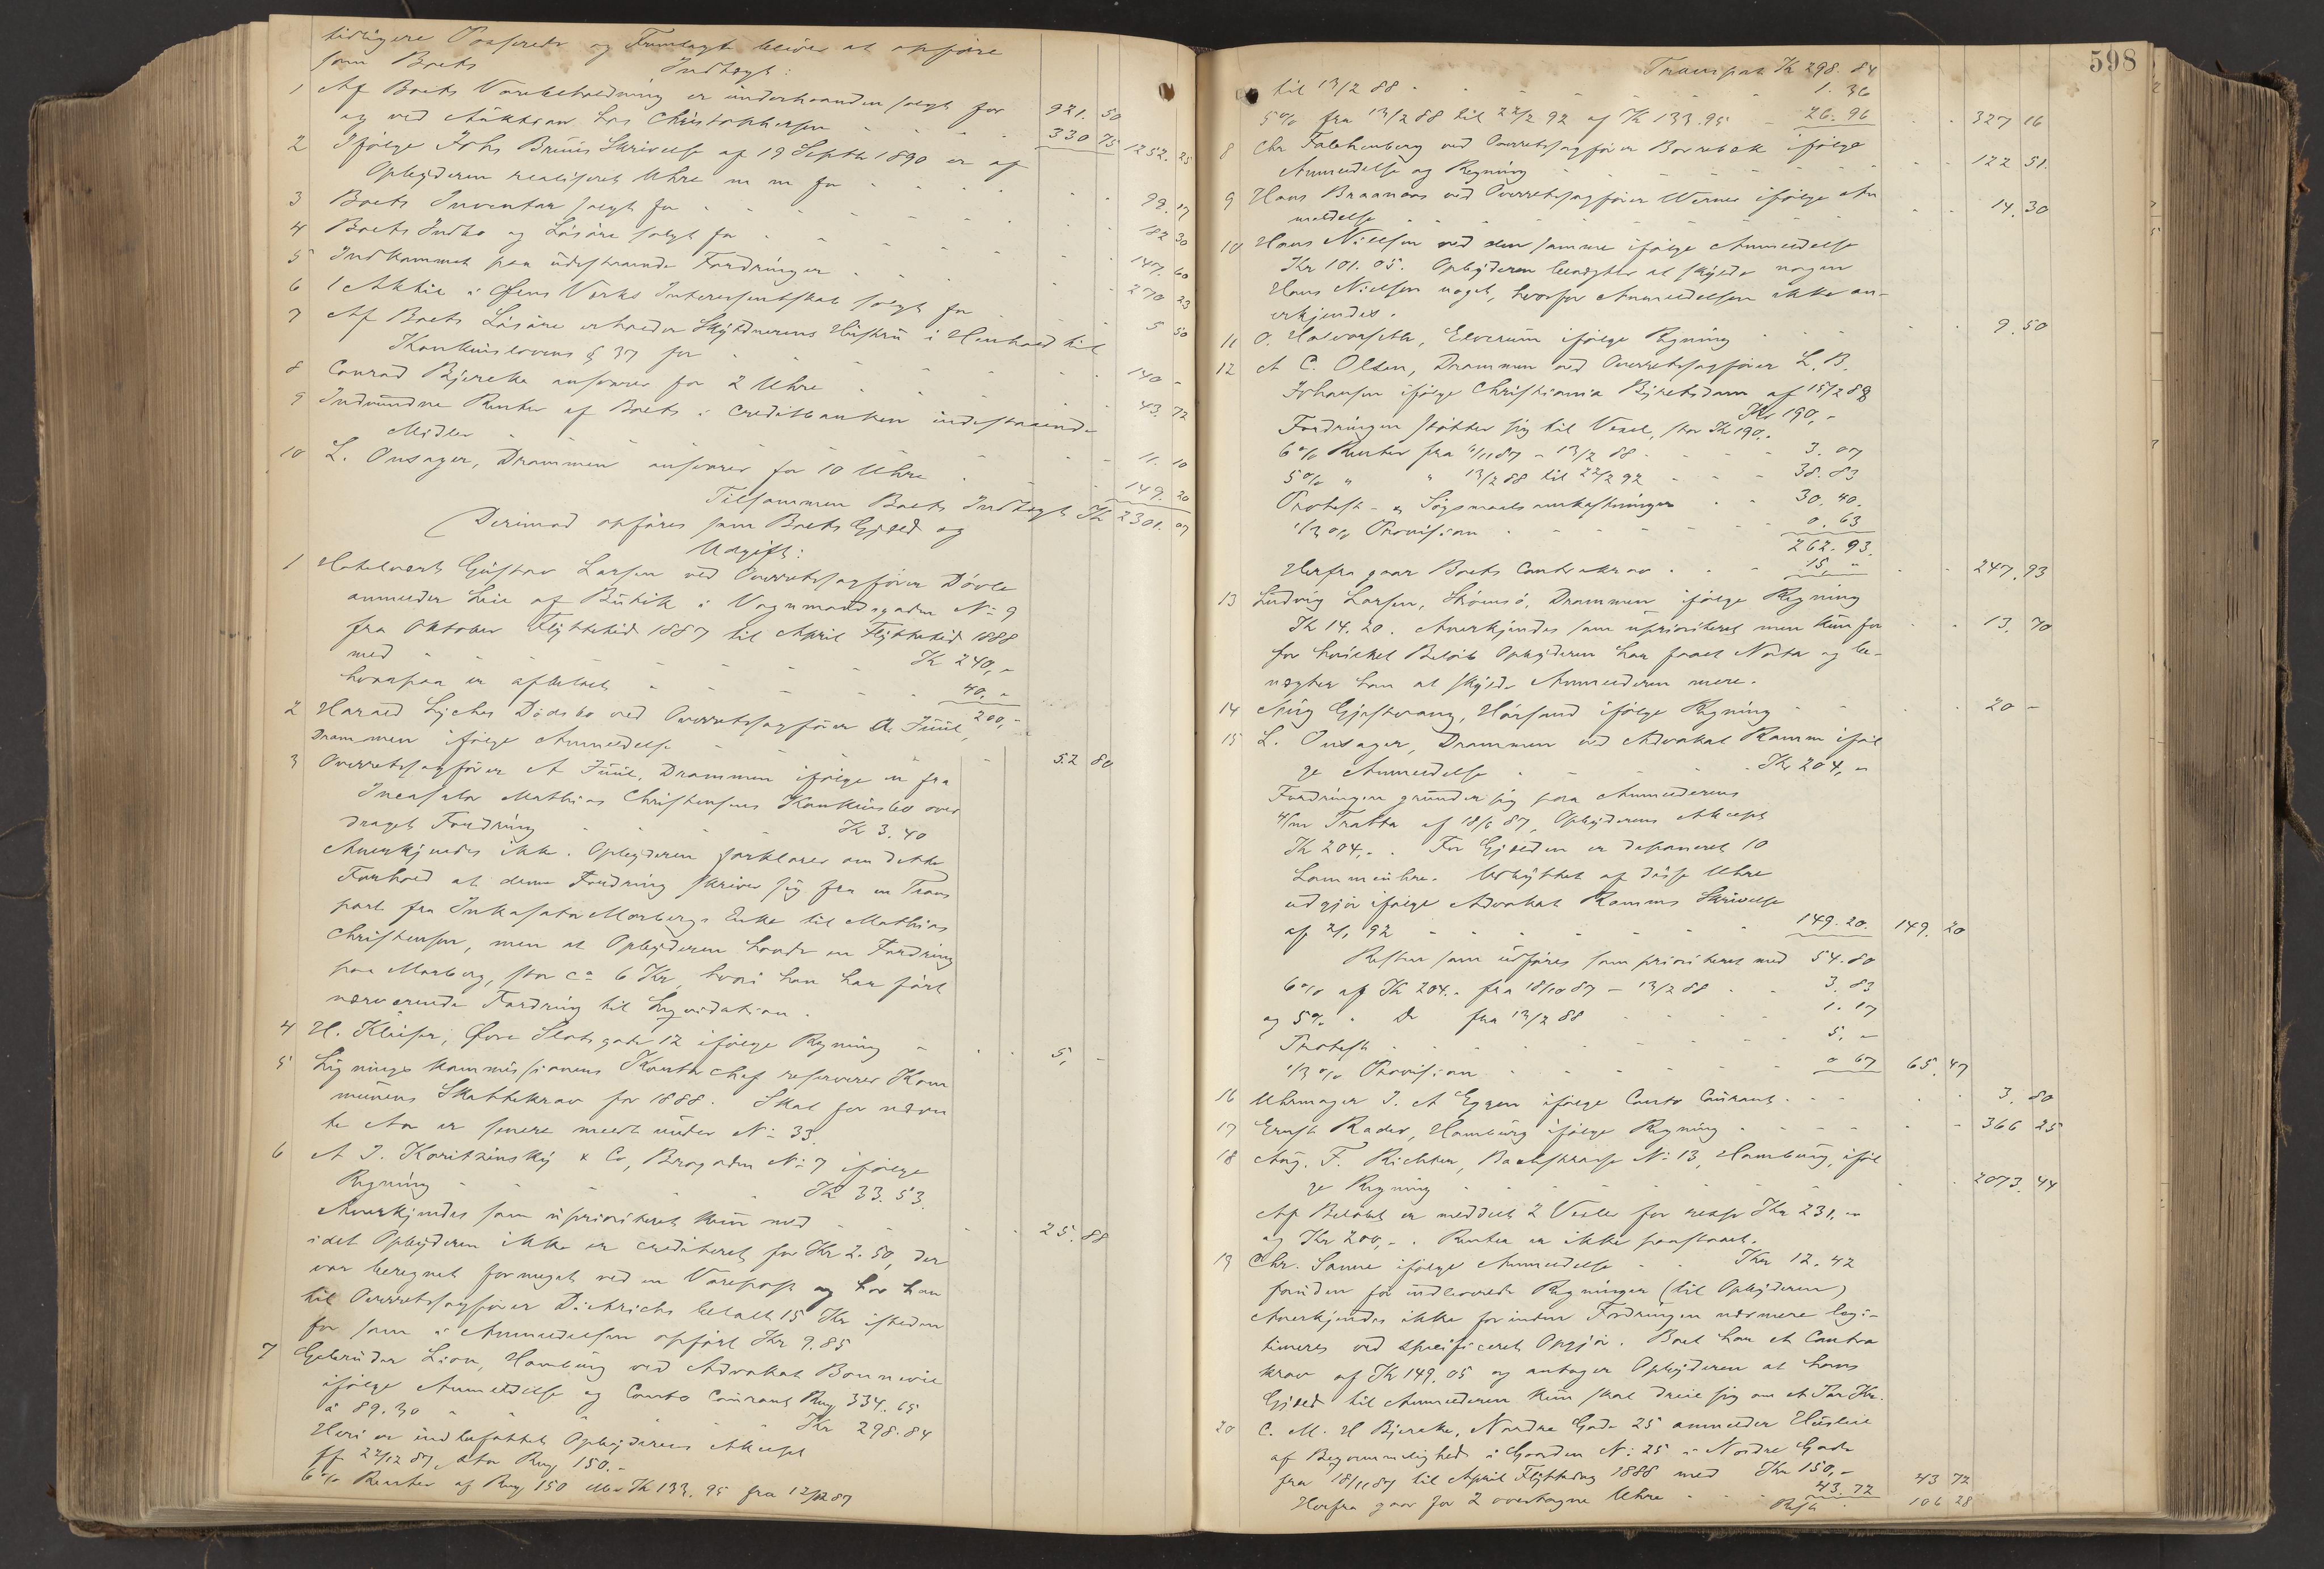 tidligere Passerede og Fremlagte bliver at opføre
som Boets Indtægt:
1 Af Boets Varebeholdning er underhaanden solgt for 921. 50
og ved Auktion hos Christophersen 330 75 1252. 25
2 Ifølge Johs Bruuns Skrivelse af 19 Septbr 1890 er af
Opbyderen realiseret Uhre m m for 99. 17
3 Boets Inventar solgt for 182 30
4 Boets Indbo og Løsøre solgt for 147. 60
5 Indkommet paa udestaaende Fordringer 270 23
6 1 Aktie i Ofens Værks Interessentskab solgt for 5 50
7 Af Boets Løsøre erholder Skyldnerens Hustru i Henhold til
Konkurslovens § 37 for 140 -
8 Conrad Bjercke ansvarer for 2 Uhre 43. 72
9 Indvundne Renter af Boets i Creditbanken indestaaende
Midler 11. 10
10 L. Onsager, Drammen ansvarer for 10 Uhre 149. 20
Tilsammen Boets Indtægt Kr 2301. 07
Derimod opføres som Boets Gjæld og
Udgift:
1 Hotelvært Gustav Larsen ved Overretssagfører Døvle
anmelder Leie af Butik i Vognmandsgaden No 9
fra Oktober Flyttetid 1887 til April Flyttetid 1888
med Kr 240, -
hvorpaa er afbetalt 40. -
200, -
2 Harald Lyches Dødsbo ved Overretssagfører A. Juul,
Drammen ifølge Anmeldelse 52 80
3 Overretssagfører A Juul, Drammen ifølge en fra
Incasator Mathias Christensens Konkursbo over
draget Fordring Kr 3. 40
Anerkjendes ikke. Opbyderen forklarer om dette
Forhold at denne Fordring skriver sig fra en Trans
port fra Inkasator Morbergs Enke til Mathias
Christensen, men at Opbyderen havde en Fordring
paa Morberg, stor ca 6 Kr, hvori han har ført
nærværende Fordring til Liqvidation.
4 H. Klüser, Øvre Slotsgade 12 ifølge Regning 5, -
5 Lignings kommissionens Kontorchef reserverer Kom
munens Skattekrav for 1888. Skat for nævn
te Aar er senere meldt under No 33.
6 A J. Koritzinsky & Co, Brogaden No 7 ifølge
Regning Kr 33. 53
Anerkjendes som uprioriteret kun med 25. 88
idet Opbyderen ikke er crediteret for Kr 2. 50, der
var beregnet formeget ved en Varepost og har han
til Overretssagfører Dietrichs betalt 15 Kr istedet
for som i Anmeldelsen opført Kr 9. 85
7 Gebrüder Lion, Hamburg ved Advokat Bonnevie
ifølge Anmeldelse og Conto Courant Rmg 334. 65
à 89. 30 Kr 298. 84
Heri er indbefattet Opbyderens Accept
pr 22/12 87, stor Rmg 150. -
6 % Renter af Rmg 150 Kr 133. 95 fra 12/12 87
598
Transport Kr 298. 84
til 13/2 88 1. 36
5 % fra 13/2 88 til 22/2 92 af Kr 133. 95 26. 96 327 16
8 Chr Falchenberg ved Overretssagfører Borrebæk ifølge
Anmeldelse og Regning 122 51.
9 Hans Braanaas ved Overretssagfører Werner ifølge An
meldelse 14. 30
10 Hans Nielsen ved den samme ifølge Anmeldelse
Kr 101. 05. Opbyderen benægter at skylde nogen
Hans Nielsen noget, hvorfor Anmeldelsen ikke an-
erkjendes.
11 O. Halvorseth, Elverum ifølge Regning 9. 50
12 A C. Olsen, Drammen ved Overretssagfører L. B.
Johansen ifølge Christiania Byretsdom af 15/2 88
Kr 190, -
Fordringen støtter sig til Vexel, stor Kr 190. -
6 % Renter fra 4/11 87 - 13/2 88 3. 07
5 % " " 13/2 88 til 22/2 92 38. 83
Protest- & Søgsmaalsomkostninger 30. 40.
1/3 % Provision 0. 63
262. 93.
Herfra gaar Boets Contrakrav 15, - 247. 93
13 Ludvig Larsen, Strømsø, Drammen ifølge Regning
Kr 14. 20. Anerkjendes som uprioriteret men kun for 13. 70
for hvilket Beløb Opbyderen har faaet Nota og be-
nægter han at skylde Anmelderen mere.
14 Aug Gjestvang, Hörsand ifølge Regning 20 -
15 L. Onsager, Drammen ved Advokat Ramm iføl
ge Anmeldelse Kr 204, -
Fordringen grunder sig paa Anmelderens
4/m Tratta af 18/6 87, Opbyderens Accept
Kr 204, -. For Gjælden er deponeret 10
Lommeuhre. Udbyttet af disse Uhre
udgjør ifølge Advokat Ramms Skrivelse
af 2/1 92 149. 20. 149. 20
Resten som udføres som prioriteret med 54. 80
6 % af Kr 204. - fra 18/10 87 - 13/2 88 3. 83
og 5 % " Do fra 13/2 88 1. 17
Protest 5, -
1/3 % Provision 0 67 65. 47
16 Uhrmager J. A Eggen ifølge Conto Courant 3. 80
17 Ernst Rader, Hamburg ifølge Regning 366 25
18 Aug. F. Richter, Bachstrasse No 13, Hamburg, iføl
ge Regning 2073. 44
Af Beløbet er meddelt 2 Vexler for resp Kr 231, -
og Kr 200, -. Renter er ikke paastaaet.
19 Chr. Sanne ifølge Anmeldelse Kr 12. 42
foruden for indleverede Regninger (til Opbyderen)
Anerkjendes ikke forinden Fordringen nærmere legi-
timeres ved specificeret Opgjør. Boet har et Contra
krav af Kr 149. 05 og antager Opbyderen at hans
Gjæld til Anmelderen kun skal dreie sig om et Par Kr.
20 C. M. H Bjercke, Nordre Gade 25 anmelder Husleie
af Beqvemmelighed i Gaarden No 25 i Nordre Gade
fra 18/11 87 til April Flytning 1888 med Kr 150, -
Herfra gaar for 2 overtagne Uhre 43. 72 43 72
Rest 106 28